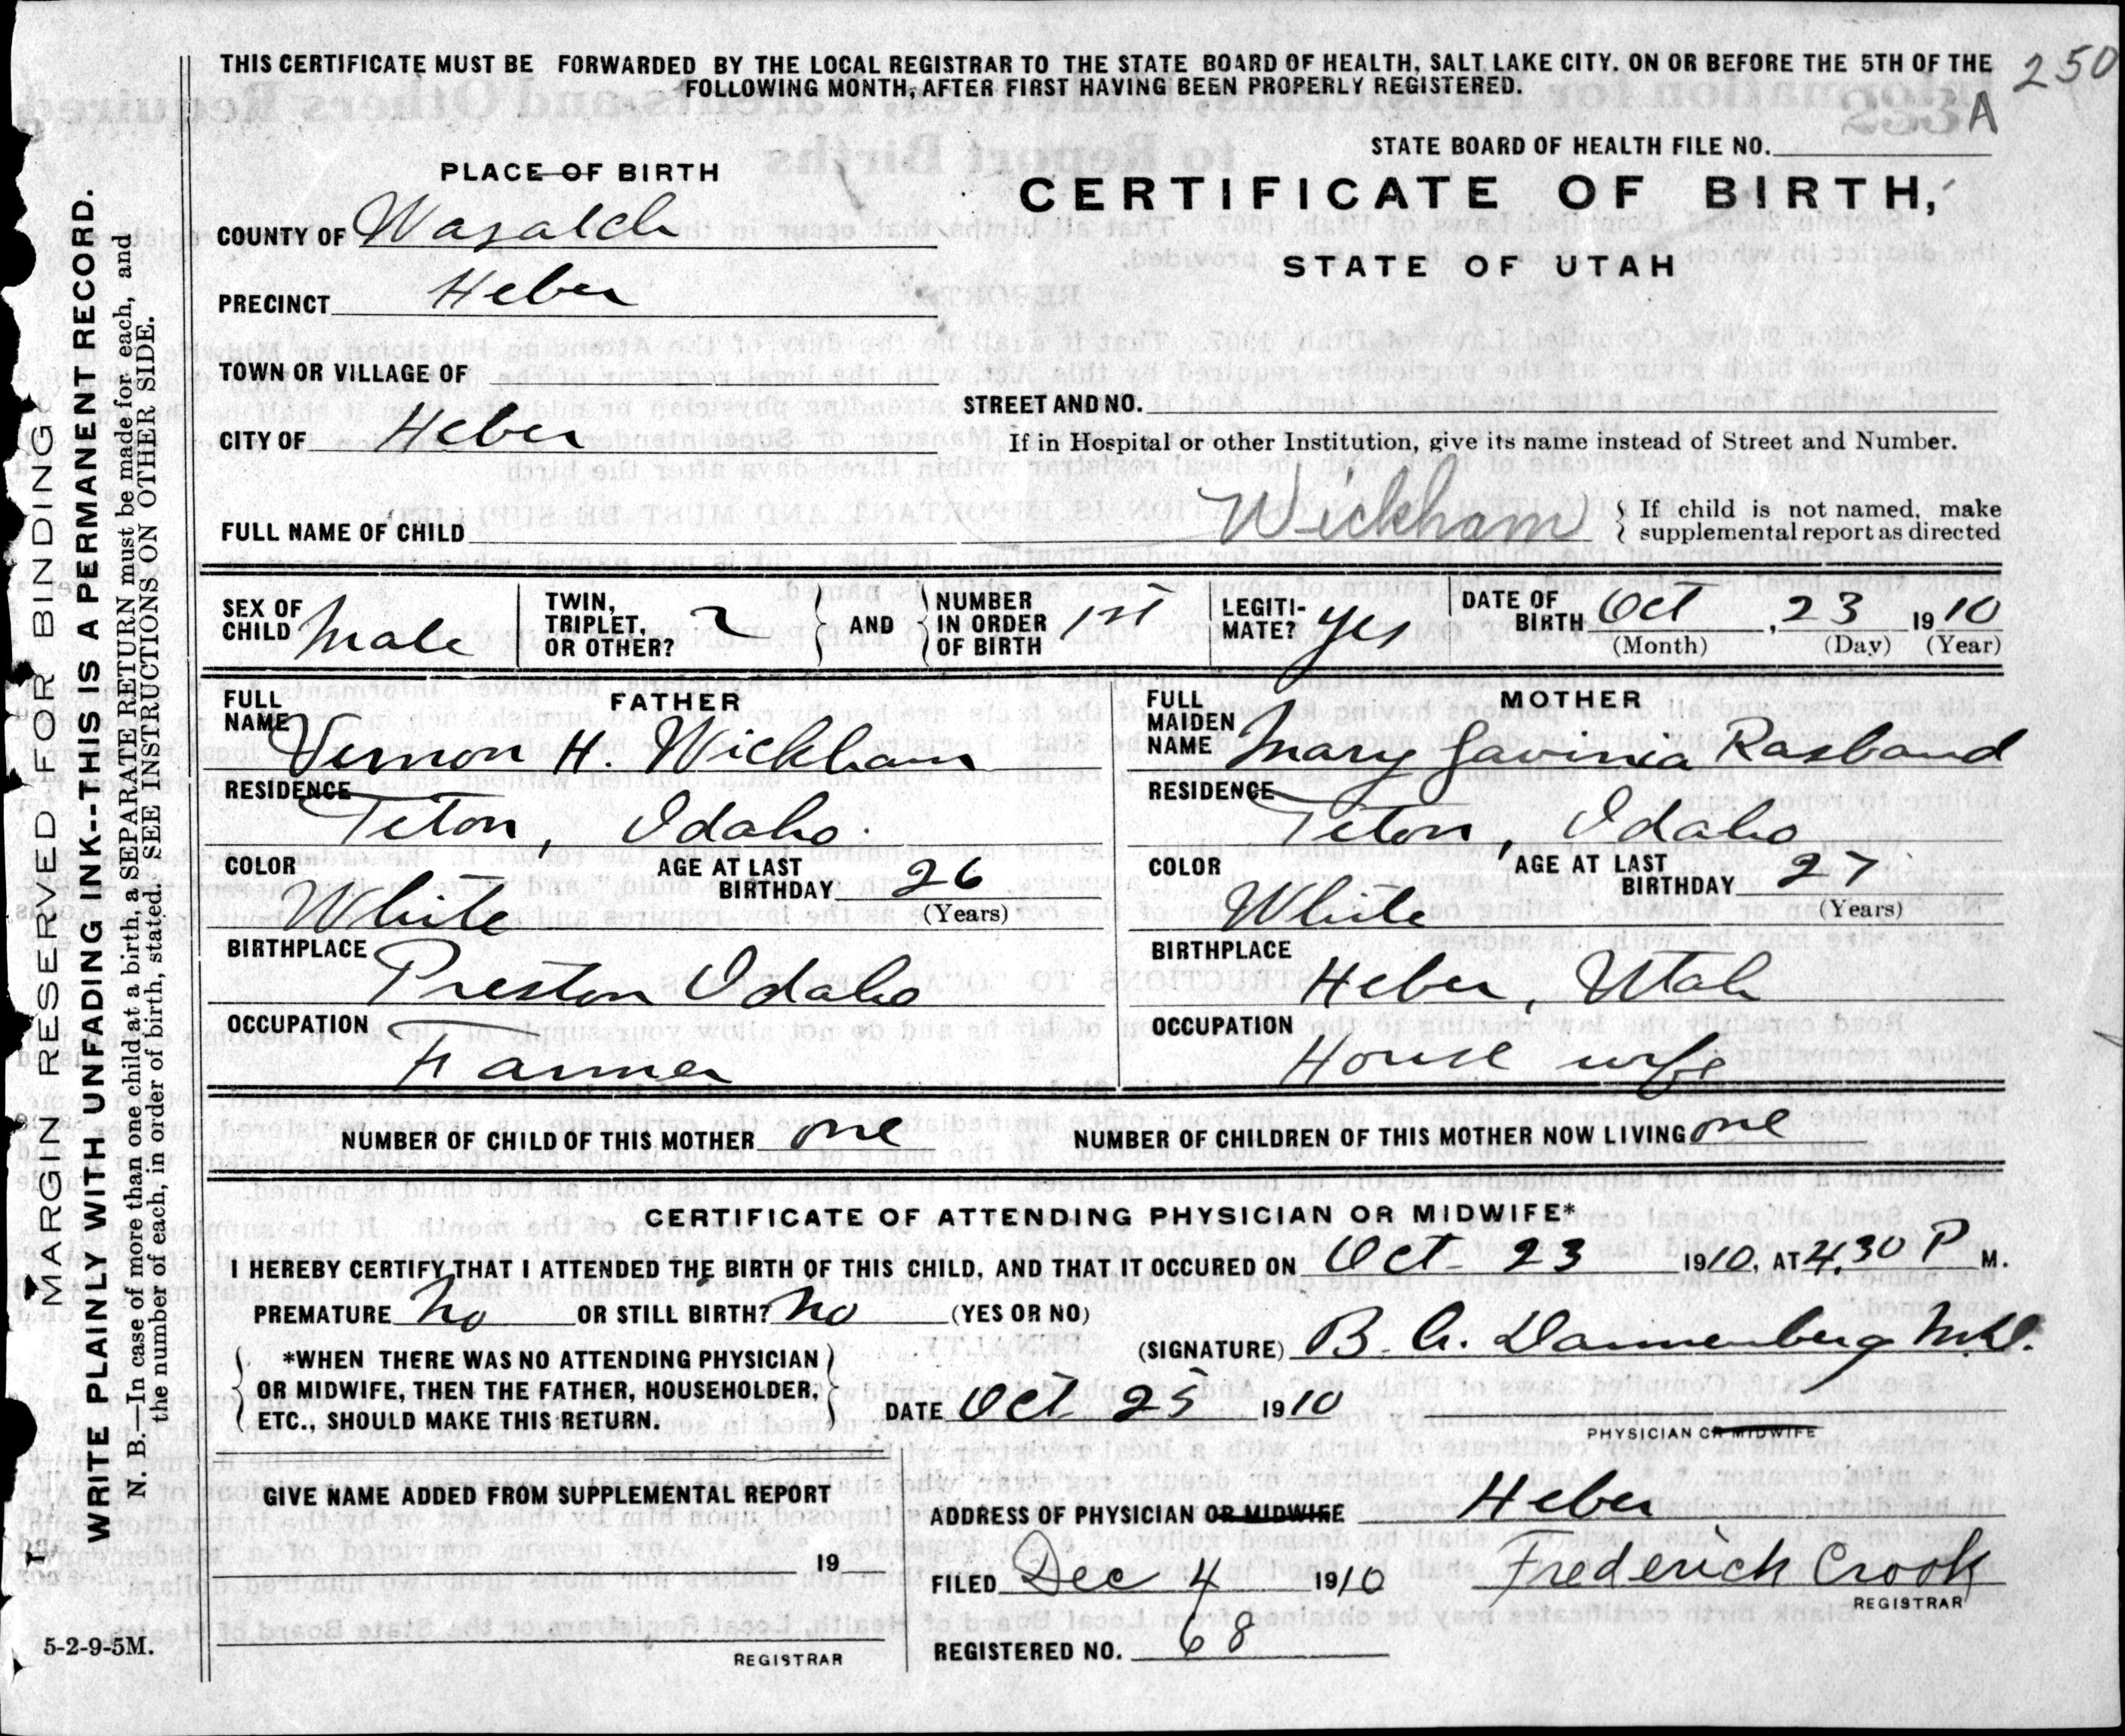 THIS CERTIFICATE MUST BE FORWARDED BY THE LOCAL REGISTRAR TO THE STATE BOARD OF HEALTH, SALT LAKE CITY, ON OR BEFORE THE 5TH OF THE
FOLLOWING MONTH, AFTER FIRST HAVING BEEN PROPERLY REGISTERED.
250
A
STATE BOARD OF HEALTH FILE NO.
PLACE OF BIRTH
CERTIFICATE OF BIRTH,
STATE OF UTAH
COUNTY OF Wasatch
PRECINCT Heber
TOWN OR VILLAGE OF
STREET AND NO.
CITY OF Heber
If in Hospital or other Institution, give its name instead of Street and Number.
FULL NAME OF CHILD Wickham
If child is not named, make
supplemental report as directed
SEX OF CHILD Male
TWIN, TRIPLET, OR OTHER? 2
AND
NUMBER IN ORDER OF BIRTH 1st
LEGITIMATE? yes
DATE OF BIRTH Oct, 23 1910
(Month) (Day) (Year)
FATHER
FULL NAME Vernon H. Wickham
RESIDENCE Teton, Idaho.
COLOR White
AGE AT LAST BIRTHDAY 26
(Years)
BIRTHPLACE Preston Idaho
OCCUPATION Farmer
MOTHER
FULL MAIDEN NAME Mary Lavinia Rasband
RESIDENCE Teton, Idaho
COLOR White
AGE AT LAST BIRTHDAY 27
(Years)
BIRTHPLACE Heber, Utah
OCCUPATION House wife
NUMBER OF CHILD OF THIS MOTHER one
NUMBER OF CHILDREN OF THIS MOTHER NOW LIVING one
CERTIFICATE OF ATTENDING PHYSICIAN OR MIDWIFE*
I HEREBY CERTIFY THAT I ATTENDED THE BIRTH OF THIS CHILD, AND THAT IT OCCURED ON Oct - 23 1910, AT 4.30 P M.
PREMATURE No OR STILL BIRTH? No (YES OR NO)
*WHEN THERE WAS NO ATTENDING PHYSICIAN
OR MIDWIFE, THEN THE FATHER, HOUSEHOLDER,
ETC., SHOULD MAKE THIS RETURN.
(SIGNATURE) B. A. Dannenberg M.D.
DATE Oct 25 1910
PHYSICIAN OR MIDWIFE
GIVE NAME ADDED FROM SUPPLEMENTAL REPORT
19
REGISTRAR
ADDRESS OF PHYSICIAN OR MIDWIFE Heber
FILED Dec 4 1910 Frederick Crook
REGISTRAR
REGISTERED NO. 68
MARGIN RESERVED FOR BINDING
WRITE PLAINLY WITH UNFADING INK--THIS IS A PERMANENT RECORD.
N. B.—In case of more than one child at a birth, a SEPARATE RETURN must be made for each, and
the number of each, in order of birth, stated. SEE INSTRUCTIONS ON OTHER SIDE.
5-2-9-5M.